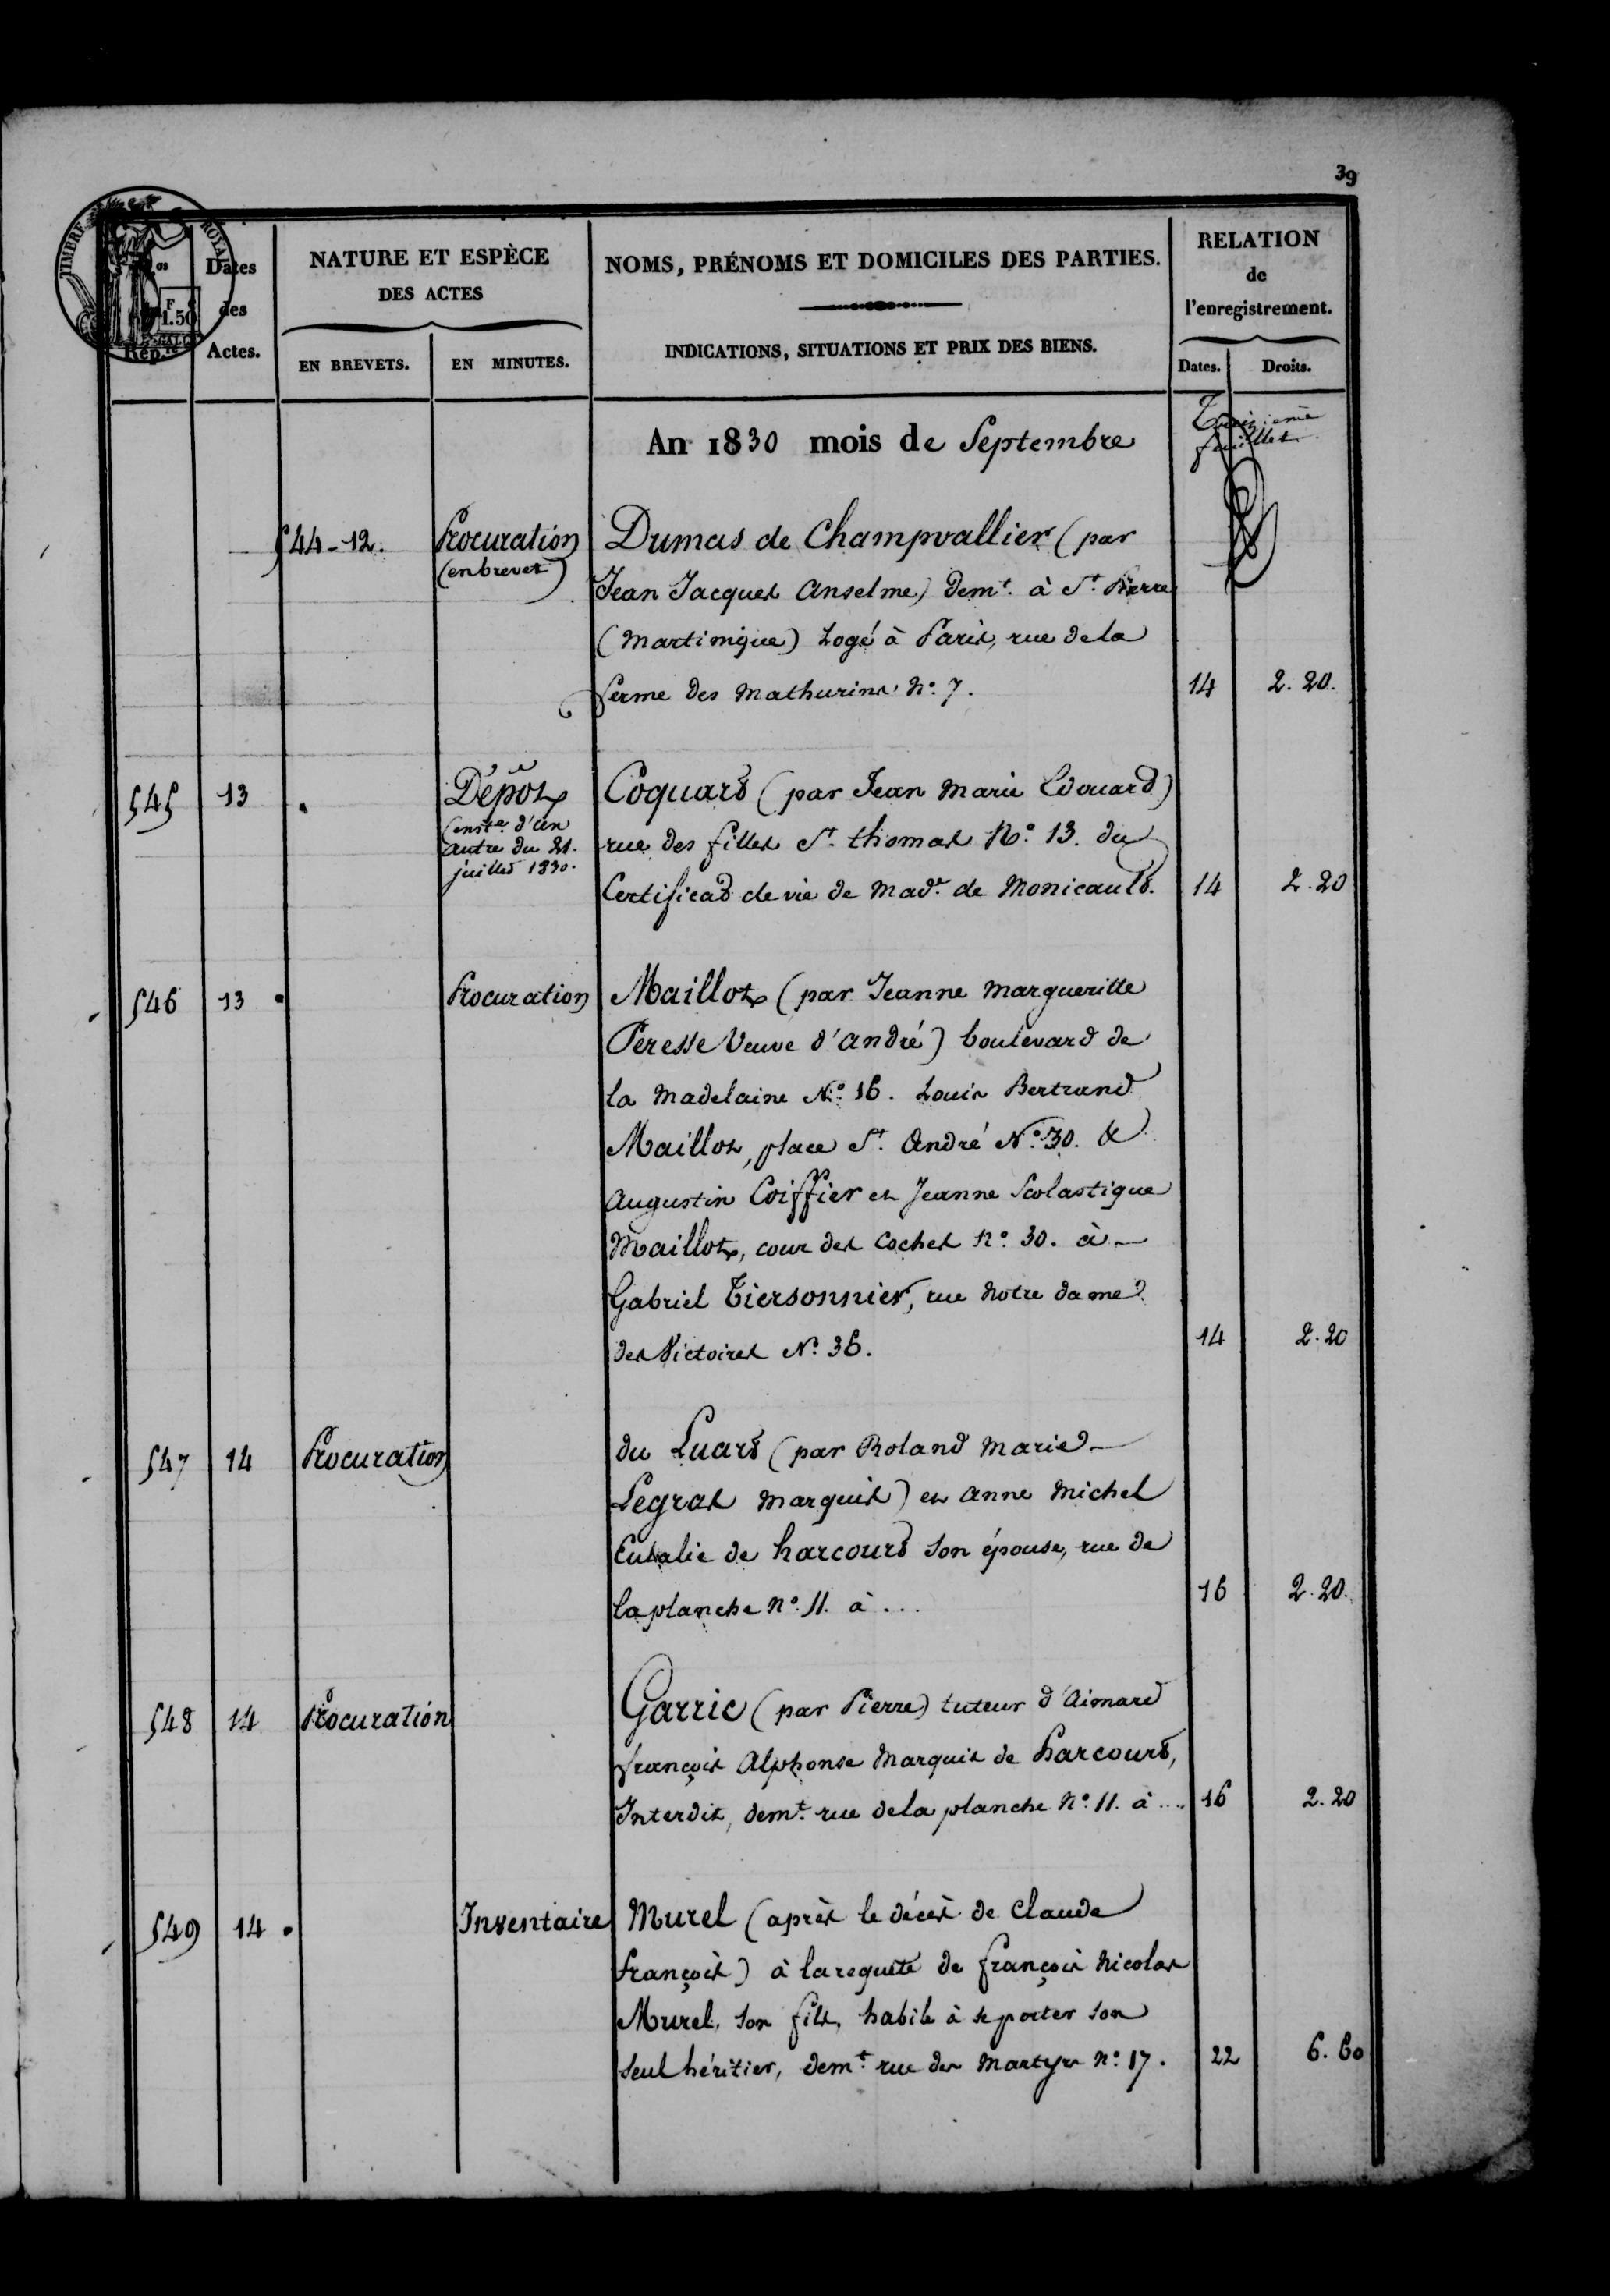 39
TIMBRE ROYAL
F. C
1.50
os
Rép.re
Dates
des
Actes.
NATURE ET ESPÈCE
DES ACTES
EN BREVETS.
EN MINUTES.
NOMS, PRÉNOMS ET DOMICILES DES PARTIES.
INDICATIONS, SITUATIONS ET PRIX DES BIENS.
RELATION
de
l'enregistrement.
Dates.
Droits.
An 1830 mois de Septembre
feuillet
544-12. Procuration Dumas de Champvallier (par
(en brevet)
Jean Jacques Anselme) demt. à St. Pierre
(Martinique) Logé à Paris, rue de la
ferme des Mathurins No. 7. 14 2.20.
545 13 Dépôt Coquard (par Jean Marie Edouard)
d'un
autre du 21. rue des filles St. thomas No. 13. du
juillet 1830.
Certificat de vie de Made. de Monicault. 14 2.20
546 13 Procuration Maillot (par Jeanne Margueritte
Peresse Veuve d'andré) boulevard de
la Madelaine No. 16. Louis Bertrand
Maillot, place St. André No. 30. &
Augustin Coiffier et Jeanne Scolastique
Maillot, cour des Coches No. 30. à
Gabriel Tiersonnier, rue Notre dame
des Victoires No. 36. 14 2.20
547 14 Procuration du Luart (par Roland Marie
Legras Marquis) et Anne Michel
Eulalie de harcourt son épouse, rue de
la planche No. 11. à ... 16 2.20.
548 14 Procuration Garric (par Pierre) tuteur d'Aimard
françois Alphonse Marquis de harcourt,
Interdit, demt. rue de la planche No. 11. à .... 16 2.20
549 14 Inventaire Murel (après le décès de Claude
françois) à la requête de françois Nicolas
Murel, son fils, habile à se porter son
seul héritier, demt. rue des Martyrs No. 17. 22 6.60